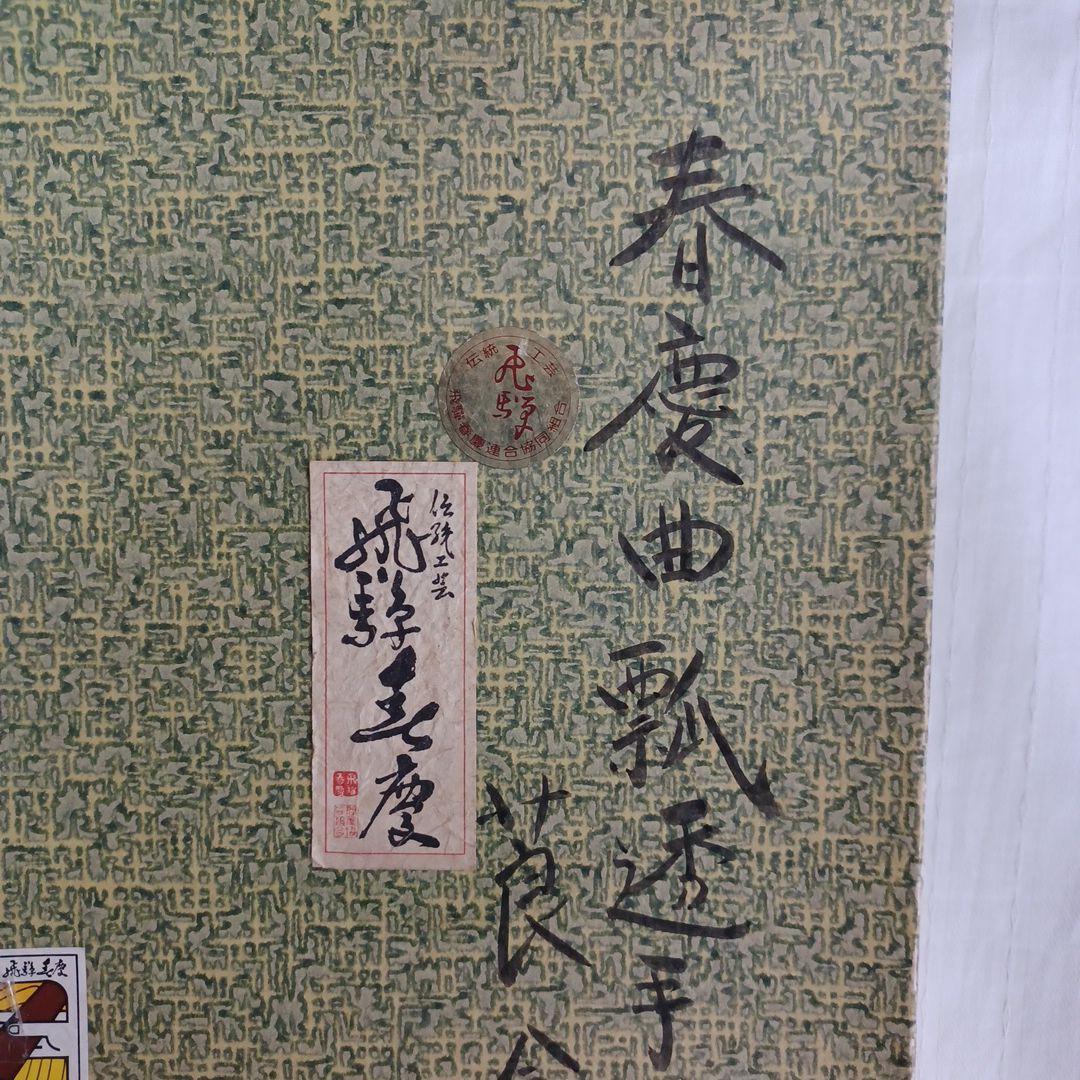 春慶曲瓢透手
莨
伝統工芸
飛騨
飛騨春慶連合協同組合
伝統工芸
飛騨春慶
飛騨春慶